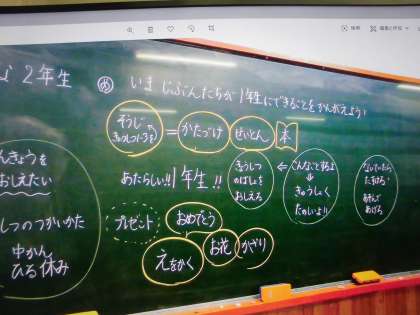 な 2年生
んきょうを
おしえたい
しつのつかいかた
中かん
ひる休み
め いま じぶんたちが 1年生にできることをかんがえよう
そうじ
= かたづけ せいとん 本
あたらしい!! 1年生!!
きょうしつ
のばしょを
おしえる
⇐ こんなことするよ
⇓
きゅうしょく
たのしいよ!!
ないていたら
たすける
あそんで
あげる
プレゼント おめでとう
えをかく お花 かざり